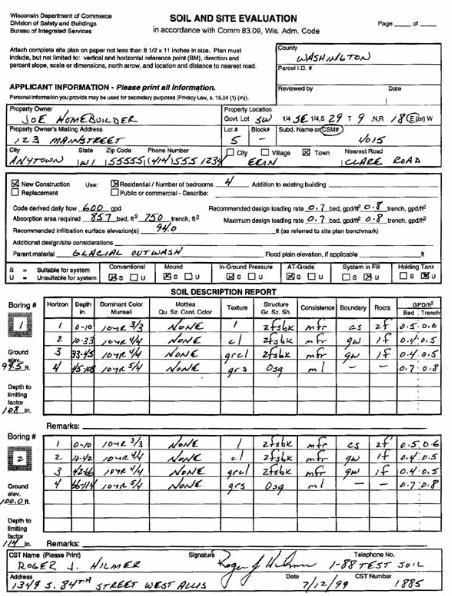 Wisconsin Department of Commerce
Division of Safety and Buildings
Bureau of Integrated Services
SOIL AND SITE EVALUATION
in accordance with Comm 83.09, Wis. Adm. Code
Page ___ of ___
Attach complete site plan on paper not less than 8 1/2 x 11 inches in size. Plan must
include, but not limited to: vertical and horizontal reference point (BM), direction and
percent slope, scale or dimensions, north arrow, and location and distance to nearest road.
County
WASHINGTON
Parcel I.D. #
APPLICANT INFORMATION - Please print all information.
Reviewed by Date
Personal information you provide may be used for secondary purposes (Privacy Law, s. 15.04 (1) (m)).
Property Owner
JOE HOMEBUILDER
Property Location
Govt. Lot SW 1/4 SE 1/4,S 29 T 9 ,N,R 18 E (or) W
Property Owner's Mailing Address
123 MAINSTREET
Lot # Block# Subd. Name or CSM#
5 4015
City State Zip Code Phone Number
ANYTOWN WI 55555 (414) 555 1234
City Village Town Nearest Road
ERIN CLARE ROAD
New Construction Use: Residential / Number of bedrooms 4 Addition to existing building
Replacement Public or commercial - Describe:
Code derived daily flow 600 gpd Recommended design loading rate 0.7 bed, gpd/ft² 0.8 trench, gpd/ft²
Absorption area required 857 bed, ft² 750 trench, ft² Maximum design loading rate 0.7 bed, gpd/ft² 0.8 trench, gpd/ft²
Recommended infiltration surface elevation(s) 94.0 ft (as referred to site plan benchmark)
Additional design/site considerations
Parent material GLACIAL OUTWASH Flood plain elevation, if applicable ft
S = Suitable for system Conventional Mound In-Ground Pressure AT-Grade System in Fill Holding Tank
U = Unsuitable for system S U S U S U S U S U S U
SOIL DESCRIPTION REPORT
Boring # Horizon Depth in. Dominant Color Munsell Mottles Qu. Sz. Cont. Color Texture Structure Gr. Sz. Sh. Consistence Boundary Roots GPD/ft² Bed Trench
1
1 0-10 10YR 3/3 NONE l 2fsbk mfr cs 2f 0.5 0.6
2 10-33 10YR 4/4 NONE cl 2fsbk mfr gw 1f 0.4 0.5
Ground elev. 99.5 ft.
3 33-45 10YR 4/4 NONE grcl 2fsbk mfr gw 1f 0.4 0.5
4 45-108 10YR 5/4 NONE grs Osg ml 0.7 0.8
Depth to limiting factor 108 in.
Remarks:
Boring #
2
1 0-10 10YR 3/3 NONE l 2fsbk mfr cs 2f 0.5 0.6
2 10-42 10YR 4/4 NONE cl 2fsbk mfr gw 1f 0.4 0.5
3 10YR 4/4 NONE grcl 2fsbk mfr gw 1f 0.4 0.5
Ground elev. 100.0 ft.
4 10YR 5/4 NONE grs Osg ml 0.7 0.8
Depth to limiting factor 114 in.
Remarks:
CST Name (Please Print) Signature Telephone No.
ROGER J. HILMER Roger J Hilmer 1-88 TEST SOIL
Address Date CST Number
1349 S. 84TH STREET WEST ALLIS 7/12/99 1885